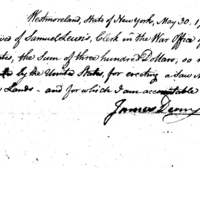 Westmoreland, State of New York, May 30. 1
ived of Samuel Lewis, Clerk in the War Office of
tes, the sum of three hundred Dollars, so
by the United States for erecting a Saw M
Lands - and for which I am accountable
James Dean